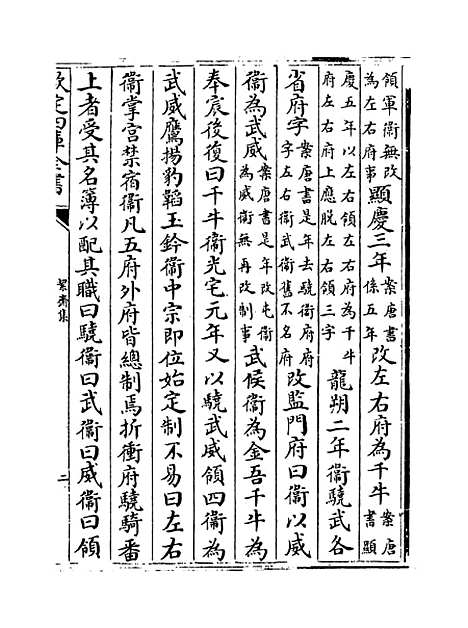 領軍衛無改為左右府事顯慶三年案唐書係五年改左右府為千牛案唐書顯
慶五年以左右領左右府為千牛府左右府上應脫左右領三字龍朔二年衛驍武各
省府字案唐書是年去驍衛府府字左右衛武衛舊不名府改監門府曰衛以威
衛為武威案唐書是年改屯衛為威衛無再改制事武候衛為金吾千牛為
奉宸後復曰千牛衛光宅元年又以驍武威領四衛為
武威鷹揚豹韜玉鈐衛中宗即位始定制不易曰左右
衛掌宮禁宿衛凡五府外府皆總制焉折衝府驍騎番
上者受其名簿以配其職曰驍衛曰武衛曰威衛曰領
欽定四庫全書
絜齋集
二